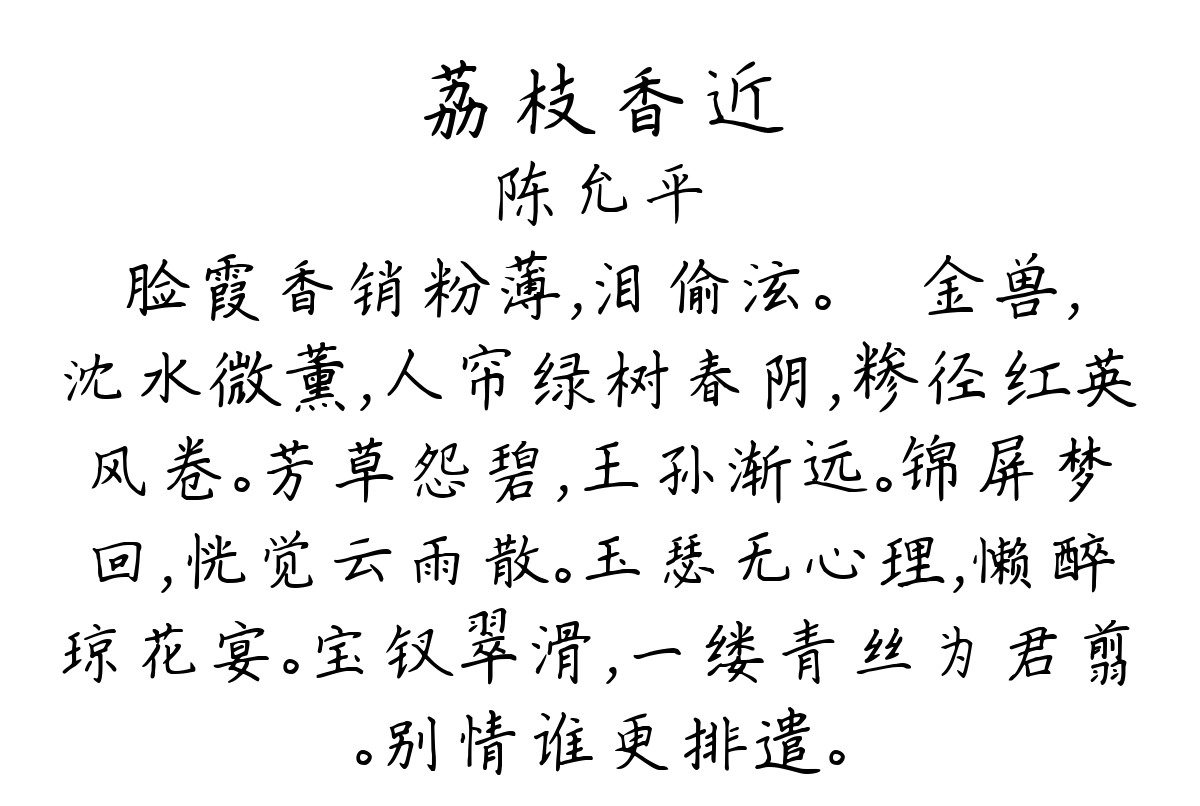 荔枝香近
陈允平
脸霞香销粉薄,泪偷泫。　金兽,
沈水微薰,人帘绿树春阴,糁径红英
风卷。芳草怨碧,王孙渐远。锦屏梦
回,恍觉云雨散。玉瑟无心理,懒醉
琼花宴。宝钗翠滑,一缕青丝为君剪
。别情谁更排遣。